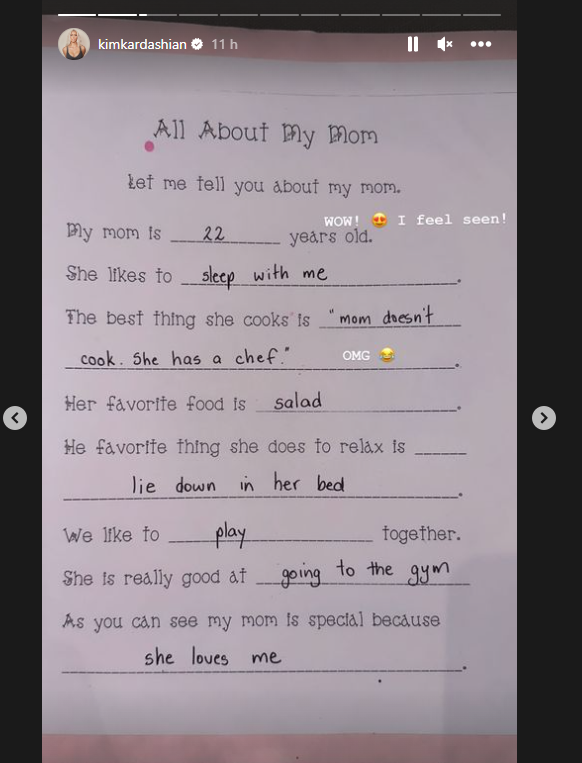 kimkardashian 11 h
All About My Mom
Let me tell you about my mom.
WOW! 😍 I feel seen!
My mom is 22 years old.
She likes to sleep with me.
The best thing she cooks is "mom doesn't
cook. She has a chef.".
OMG 😂
Her favorite food is salad.
He favorite thing she does to relax is
lie down in her bed.
We like to play together.
She is really good at going to the gym
As you can see my mom is special because
she loves me.